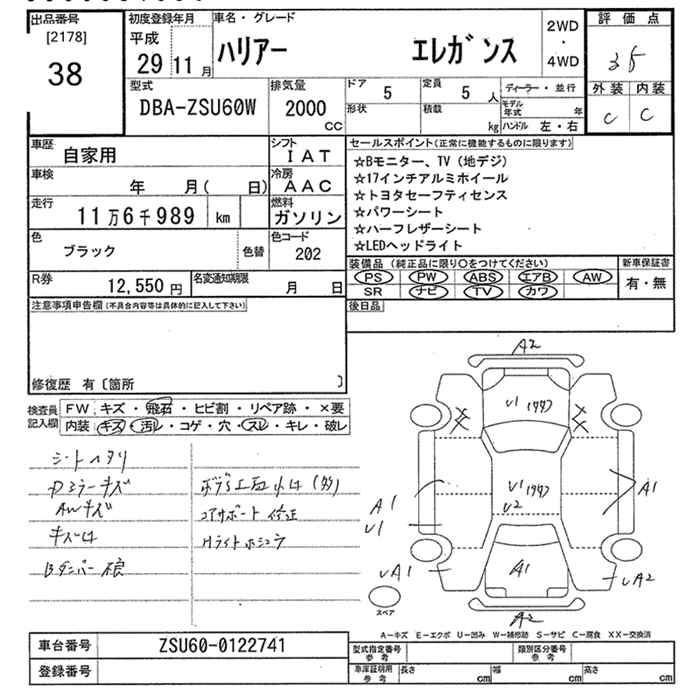 出品番号
[2178]
38
初度登録年月
平成
29 11 月
車名・グレード
ハリアー エレガンス
2WD
・
4WD
評価点
3.5
外装 内装
C C
型式
DBA-ZSU60W
排気量
2000
CC
ドア 5
定員 5 人
ディーラー・並行
形状
積載 kg
モデル年式 年
ハンドル 左・右
車歴
自家用
シフト
IAT
車検
年 月( 日)
冷房
AAC
走行
11万6千989 km
燃料
ガソリン
色
ブラック
色替
色コード
202
R券
12,550 円
名変通知期限
月 日
セールスポイント(正常に機能するものに限ります)
☆Bモニター、TV(地デジ)
☆17インチアルミホイール
☆トヨタセーフティセンス
☆パワーシート
☆ハーフレザーシート
☆LEDヘッドライト
装備品(純正品に限り〇をつけてください)
新車保証書
PS PW ABS エアB AW
SR ナビ TV カワ
有・無
後日品
注意事項申告欄(不具合内容等は具体的に記入して下さい)
修復歴 有〔箇所 〕
検査員
記入欄
FW キズ・飛石・ヒビ割・リペア跡・×要
内装 キズ・汚レ・コゲ・穴・スレ・キレ・破レ
シートヘタリ
ドアミラーキズ
AWキズ
Bダンパー
ボデー上 小凹(多)
コアサポート修正
A2
U1
U1
U2
A1
A1
U1
A1
A1
A2
A2
スペア
A-キズ E-エクボ U-凹み W-補修跡 S-サビ C-腐食 XX-交換済
車台番号
ZSU60-0122741
登録番号
型式指定番号
参考
類別区分番号
参考
車庫証明用
参考
長さ cm
幅 cm
高さ cm